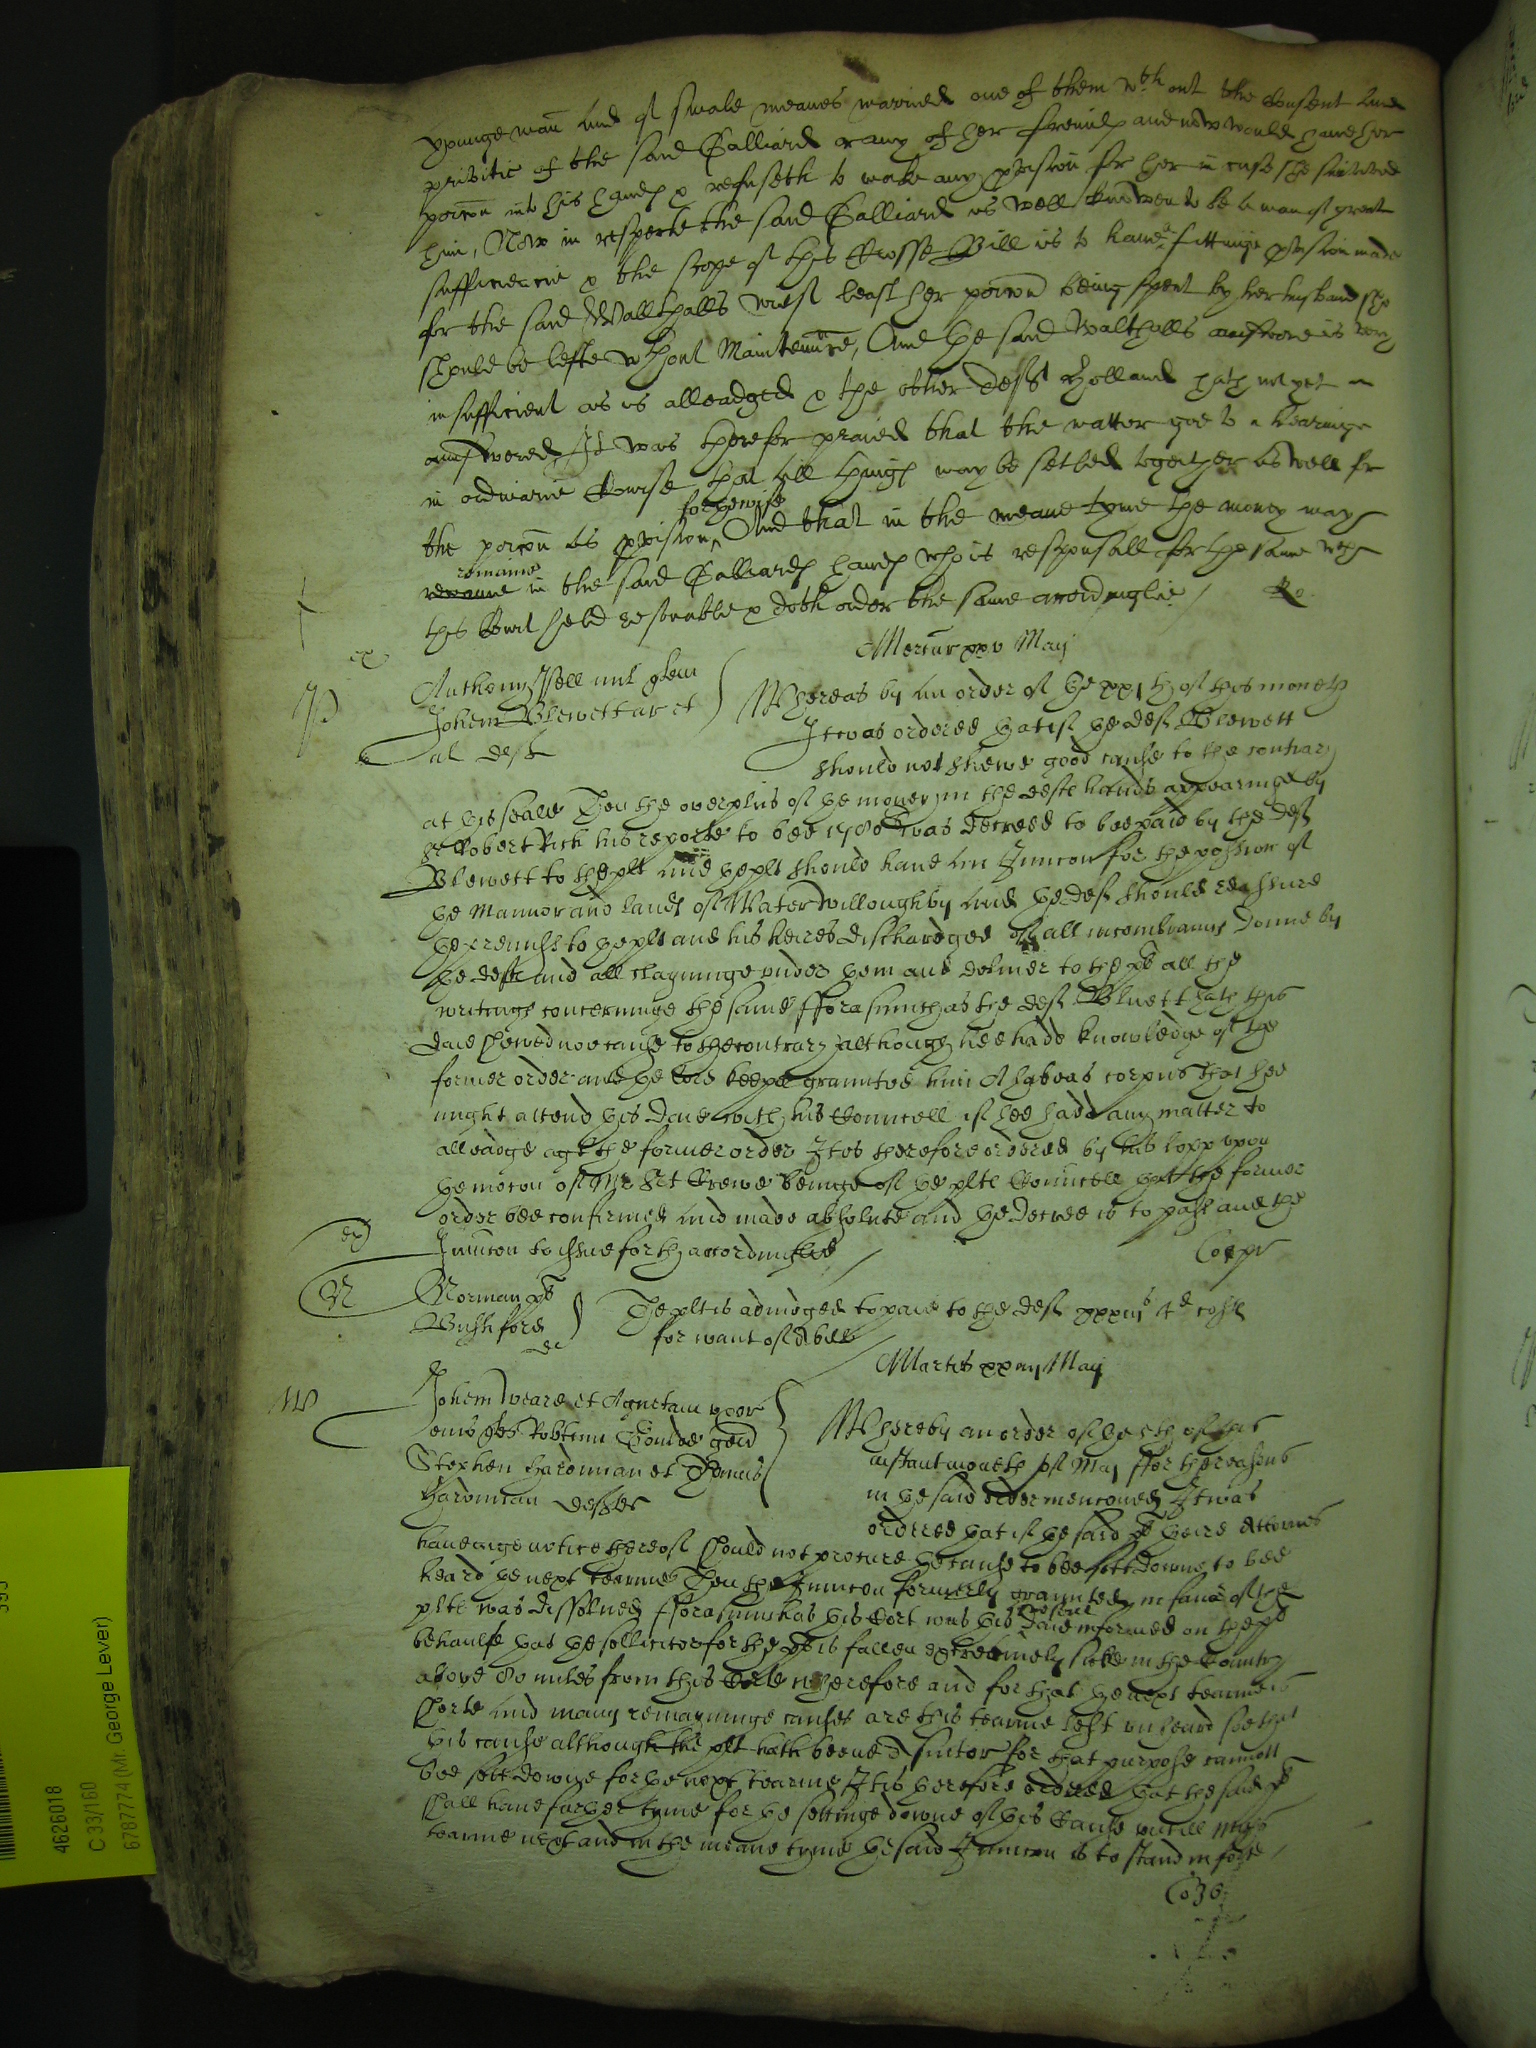 younge man and of smale meanes married one of them wth out the consent and
privitie of the said Galliard or any of her freinds and now would have her
porcon into his hands & refuseth to make any pvision for her in case she survived
him, Now in respecte the said Galliard is well knowen to be a man of great
sufficiencie & the scope of this Crosse Bill is to have fittinge pvision made
for the said Wallthalls wief least her porcon being spent by her husband she
should be lefte wthout Maintennce, And the said Walthalls answere is very
insufficient as is alleadged & the other deft Holland hath not yet
answered, It was therefor praied that the matter goe to a hearinge
in ordinarie Course that all things may be setled together as well for
the porcon as pvision for the wife And that in the meane tyme the money may
remaine in the said Galliards hands who is responsall for the same wch
this Court held reasonable & doth order the same accordinglie / Ro
Mercur xxv Maij
Anthony quer
Johem Blewett ar et
al deft
Whereas by an order of the xxj th of this moneth
It was ordered that if the deft Blewett
should not shewe good cause to the contrary
at this seale Then the overplus of the money in the defts hands appearinge by
Sr Robert Rich his reporte to bee was decreed to bee paid by the deft
Blewett to the plt and the plt should have an Iniuncon for the possion of
the Mannor and lands of Water Willoughby and the deft should reassure
the premisses to the plt and his heires dischardged of all incombrances donne by
the deft and all clayminge under them and deliver to the plt all the
writings concerninge the same fforasmuch as the deft Bluett hath this
daie shewed noe cause to the contrary although hee hadd knowledge of the
former order and the lord keeper graunted him A habeas corpus that hee
might attend this daie with his Councell if hee hadd any matter to
alleadge agt the former order It is therefore ordered by his lopp upon
the mocon of Mr Sct Crewe beinge of the plts Councell that the former
order bee confirmed and made absolute and the decree is to passe and the
Iniuncon to issue forth accordinglie / Coepr
Norman plt
Bushford
de
The plt is adiudged to paie to the deft costs
for want of A bill
Martis Maij
Johem Weare et Agnetam uxor
eius quer Robtum gen
Stephen Hardiman et Thomas
Hardiman deftes
Whereby an order of the of this
instant moneth of May ffor the reasons
in the said order menconed It was
ordered that if the said plt theire Attorney
haveinge notice thereof should not procure the cause to bee sett downe to bee
heard the next tearme Then the Iniuncon formerly graunted in favor of the
plts was dissolved fforasmuch as this Cort was this presente daie informed on the plts
behaulfe that the sollicitor for the plt is fallen extreamely sicke in the Country
above 80 miles from this Corte wherefore and for that the next tearme is
shorte and many remayninge causes are this tearme left unheard soe that
this cause although the plt hath beene a suitor for that purpose cannott
bee sett downe for the next tearme It is therefore ordered that the said plt
shall have further tyme for the settinge downe of this Cause untill
tearme next and in the meane tyme the said Iniuncon is to stand in force /
4626018
C 33/160
6787774 (Mr. George Lever)